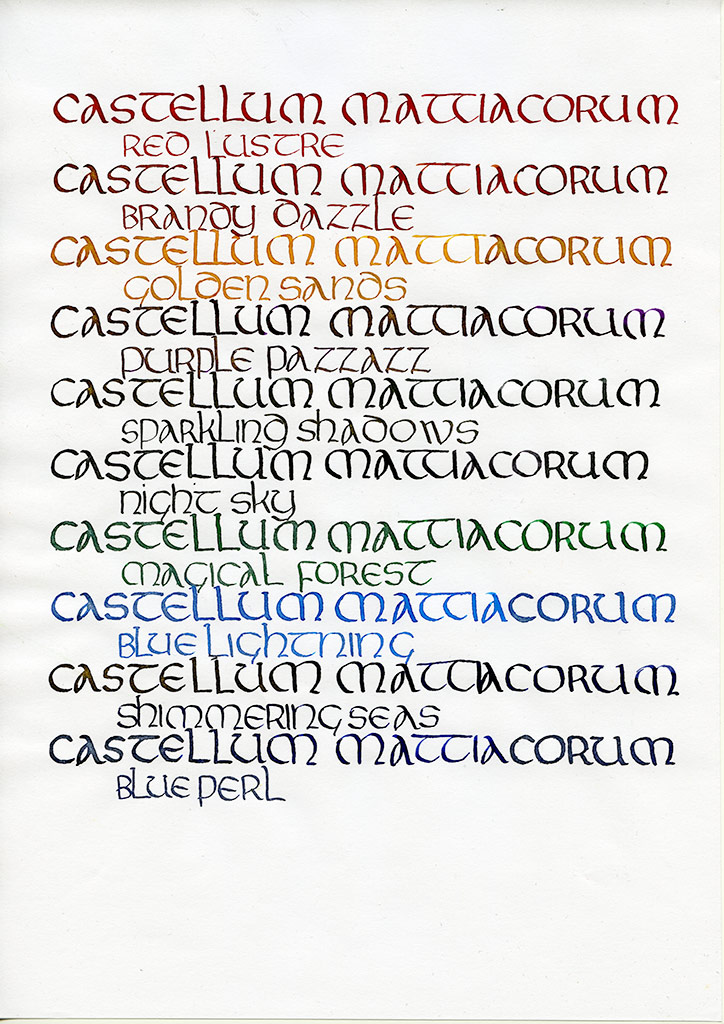 CASTELLUM MATTIACORUM
RED LUSTRE
CASTELLUM MATTIACORUM
BRANDY DAZZLE
CASTELLUM MATTIACORUM
GOLDEN SANDS
CASTELLUM MATTIACORUM
PURPLE PAZZAZZ
CASTELLUM MATTIACORUM
SPARKLING SHADOWS
CASTELLUM MATTIACORUM
NIGHT SKY
CASTELLUM MATTIACORUM
MAGICAL FOREST
CASTELLUM MATTIACORUM
BLUE LIGHTNING
CASTELLUM MATTIACORUM
SHIMMERING SEAS
CASTELLUM MATTIACORUM
BLUE PERL